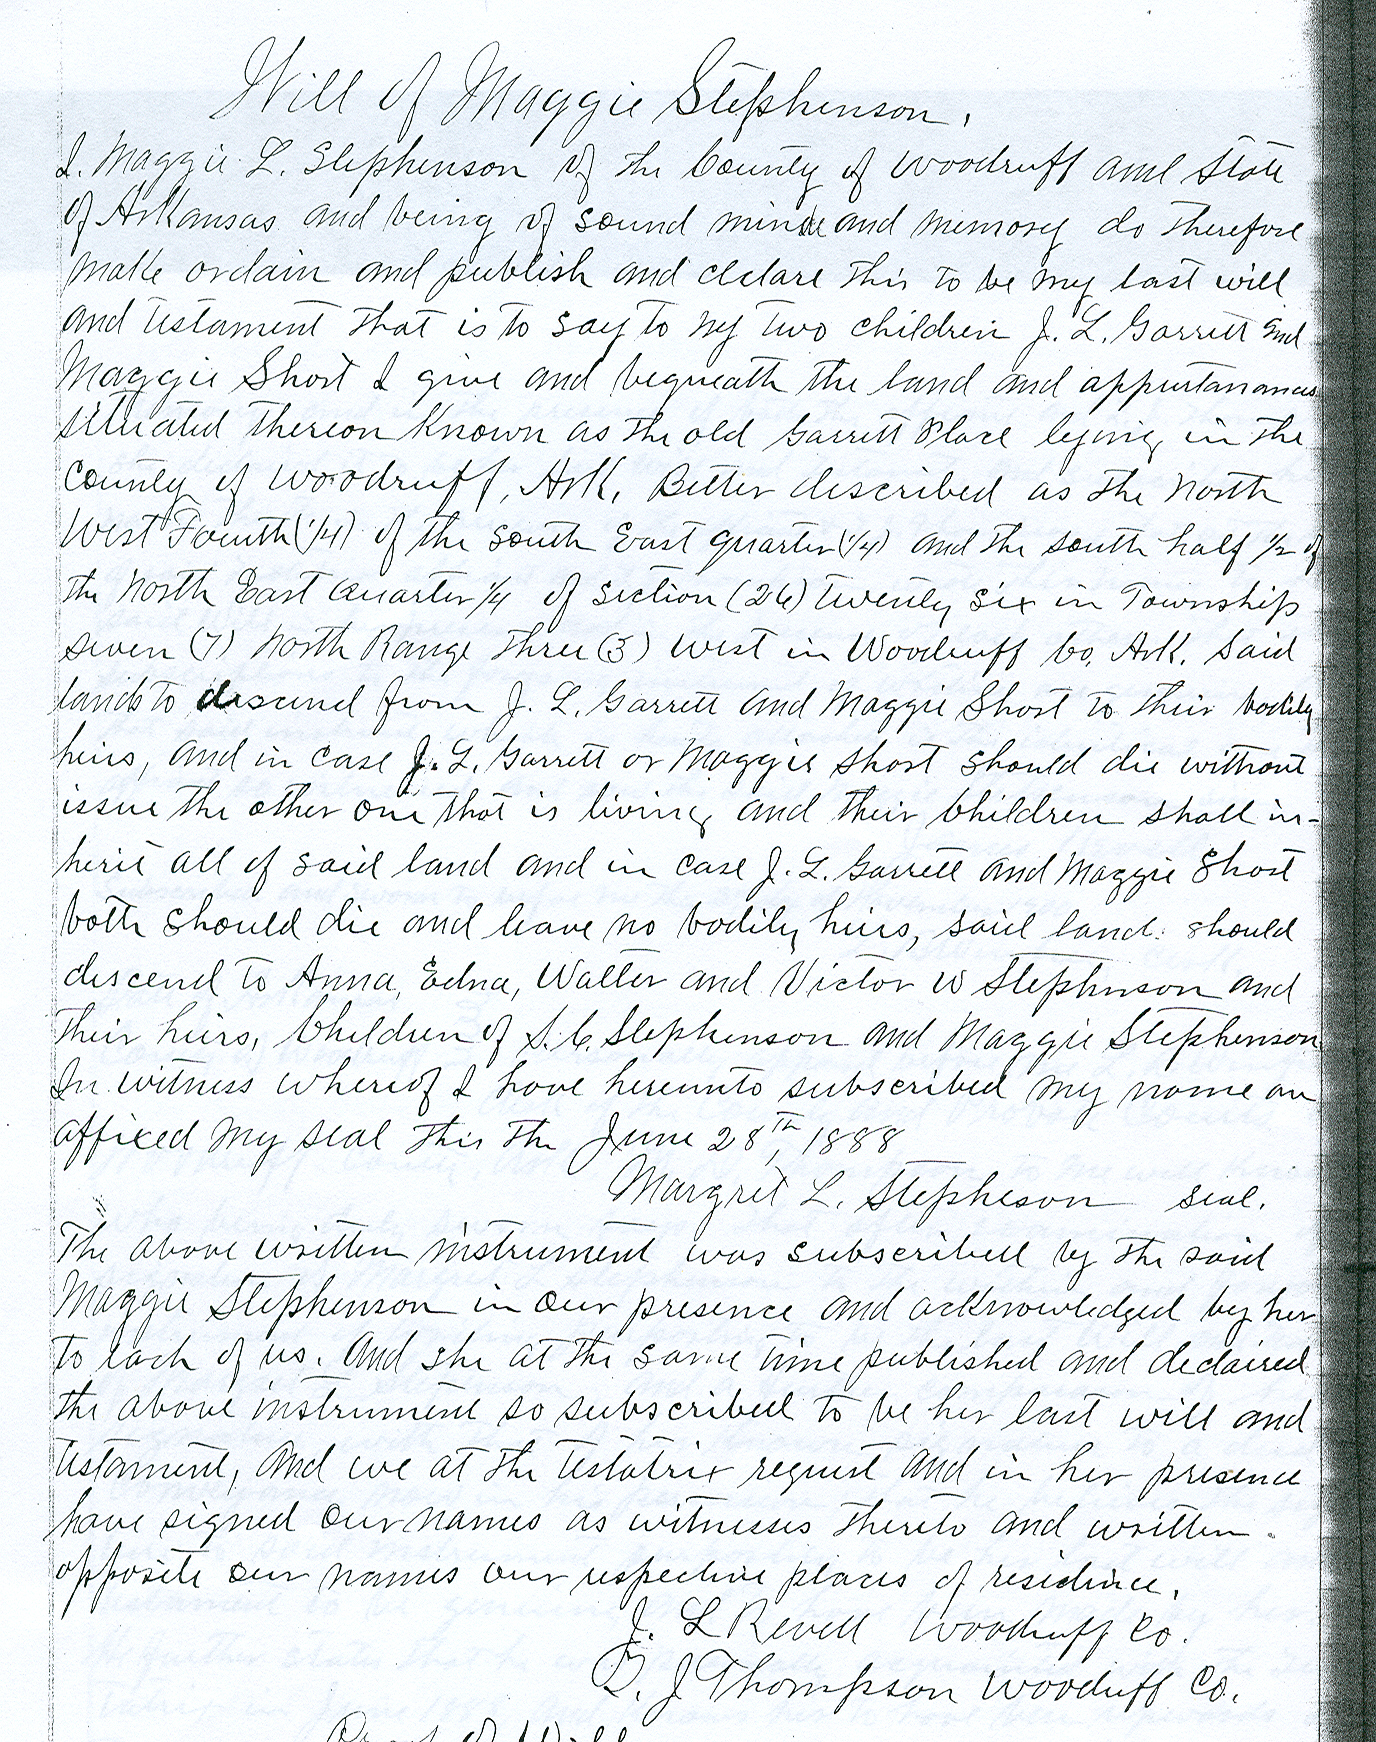 Will of Maggie Stephenson.
I. Maggie L. Stephenson of the County of Woodruff and State
of Arkansas and being of sound minde and memory do therefore
make ordain and publish and declare this to be my last will
and testament that is to say to my two children J. L. Garrett and
Maggie Short I give and bequeath the land and appurtanances
situated thereon Known as the old Garrett Place lying in the
County of Woodruff, Ark, Better described as the North
West Fourth (1/4) of the South East quarter (1/4) and the south half 1/2 of
the North East Quarter 1/4 of section (26) twenty six in Township
seven (7) North Range Three (3) West in Woodruff Co, Ark. Said
lands to descend from J. L. Garrett and Maggie Short to their bodily
heirs, and in case J. L. Garrett or Maggie Short should die without
issue the other one that is living and their Children shall in-
herit all of said land and in case J. L. Garrett and Maggie Short
both should die and leave no bodily heirs, said land should
descend to Anna, Edna, Walter and Victor W Stephnson and
their heirs, Children of S. C. Stephenson and Maggie Stephenson
In witness whereof I have hereunto subscribed my name an
affixed my seal this the June 28th, 1888
Margret L. Stepheson seal.
The above written instrument was subscribed by the said
Maggie Stephenson in our presence and acknowledged by her
to each of us. And she at the same time published and declaired
the above instrument so subscribed to be her last will and
testament, and we at the testatrix request and in her presence
have signed our names as witnesses thereto and written
opposite our names our respective places of residence.
J. L Revell Woodruff Co.
J Thompson Woodruff Co.
Proof of Will